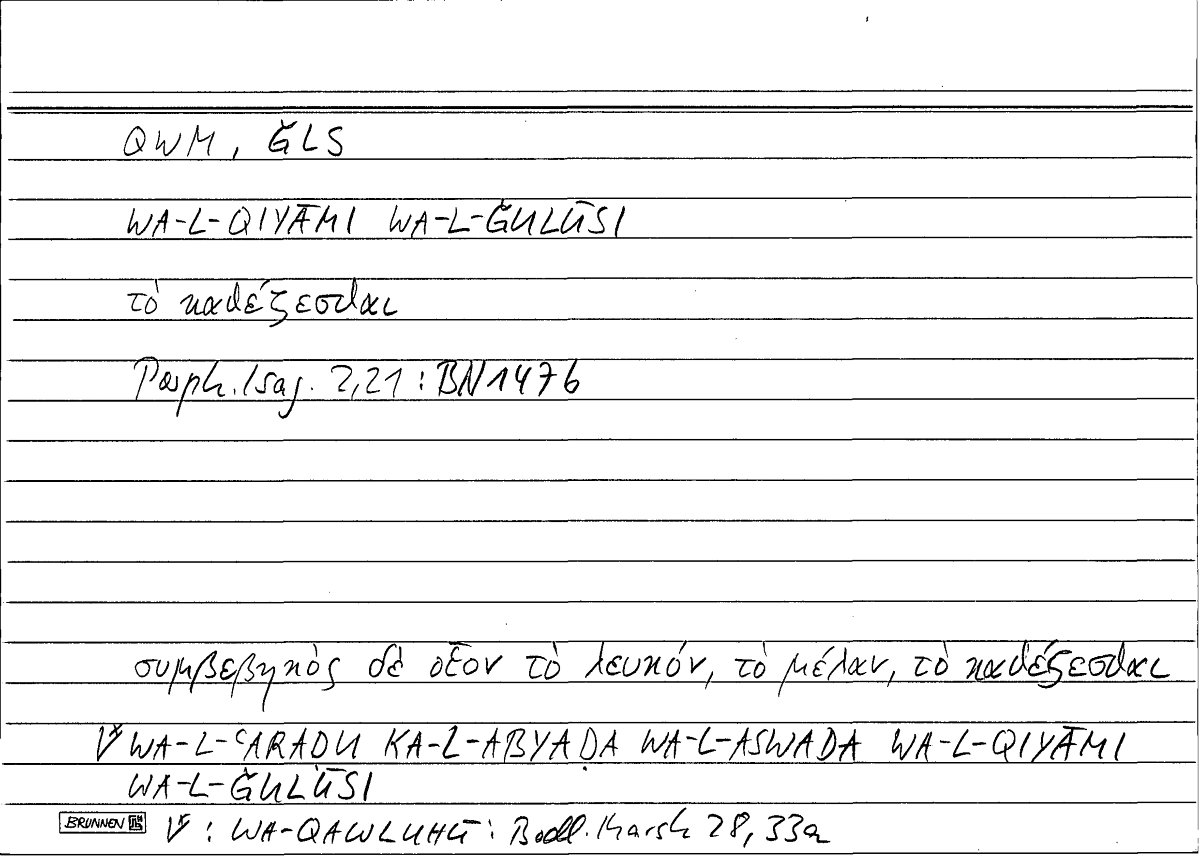 QWM, ǦLS
WA-L-QIYĀMI WA-L-ǦULŪSI
τὸ καθέζεσθαι
Porph. Isag. 2,21: BN 1476
συμβεβηκὸς δὲ οἷον τὸ λευκόν, τὸ μέλαν, τὸ καθέζεσθαι
WA-L-ʿARAḌU KA-L-ABYAḌA WA-L-ASWADA WA-L-QIYĀMI
WA-L-ǦULŪSI
BRUNNEN : WA-QAWLUHŪ: Bodl. Marsh 28, 33a